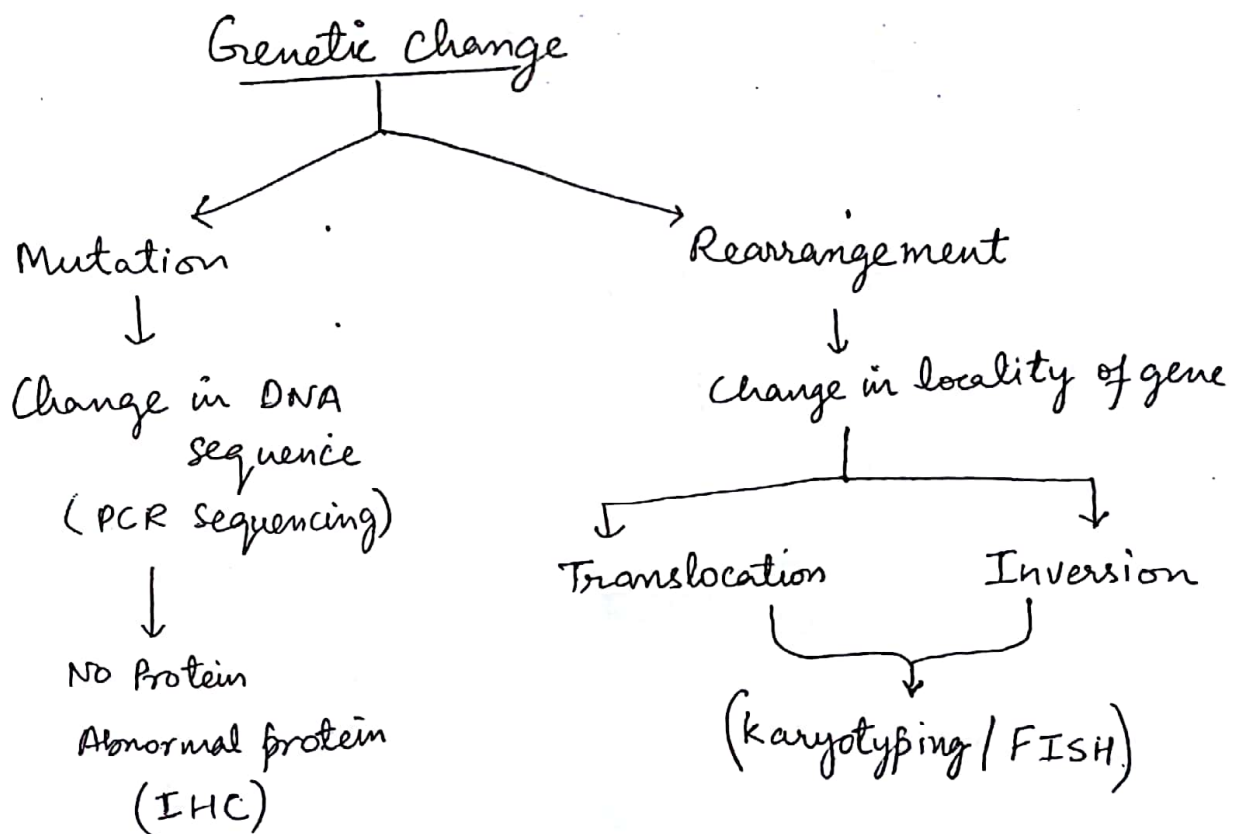 Genetic change
Mutation
Change in DNA
sequence
(PCR sequencing)
No Protein
Abnormal protein
(IHC)
Rearrangement
Change in locality of gene
Translocation
Inversion
(Karyotyping / FISH)